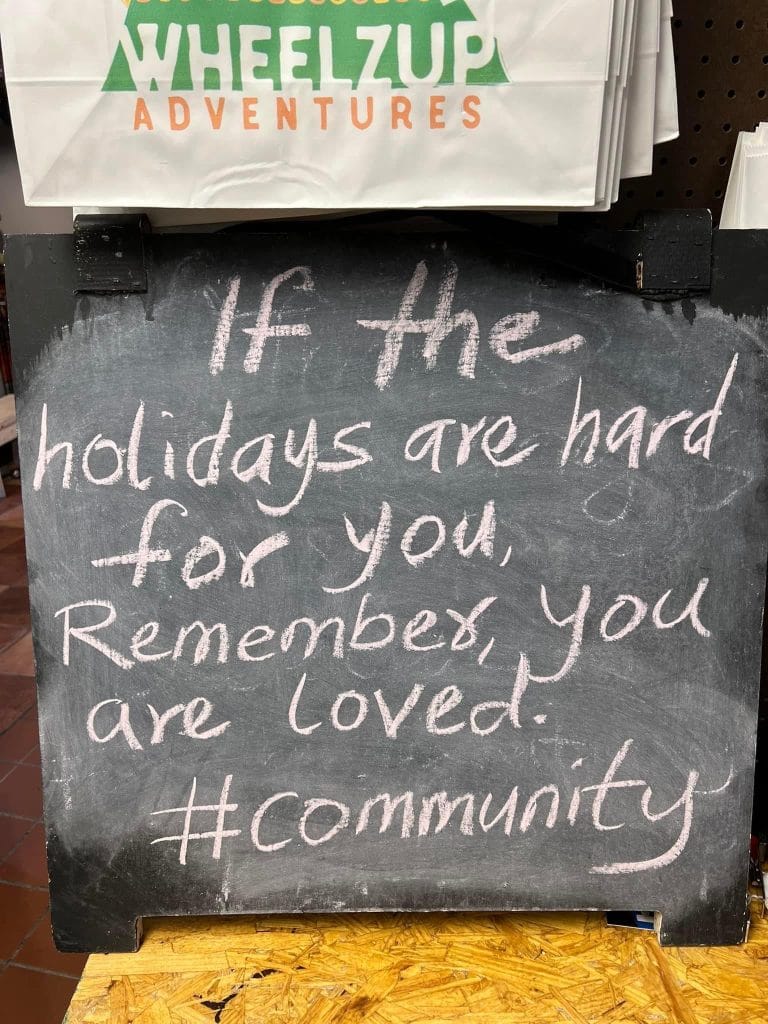 WHEELZUP
ADVENTURES
If the
holidays are hard
for you,
Remember, you
are loved.
#community